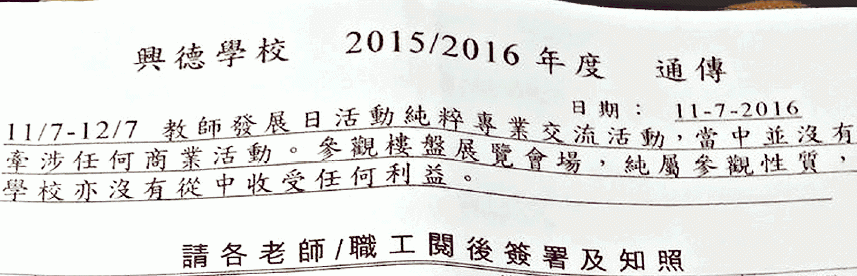 興德學校 2015/2016 年度 通傳
日期： 11-7-2016
11/7-12/7 教師發展日活動純粹專業交流活動，當中並沒有
牽涉任何商業活動。參觀樓盤展覽會場，純屬參觀性質，
學校亦沒有從中收受任何利益。
請各老師/職工閱後簽署及知照